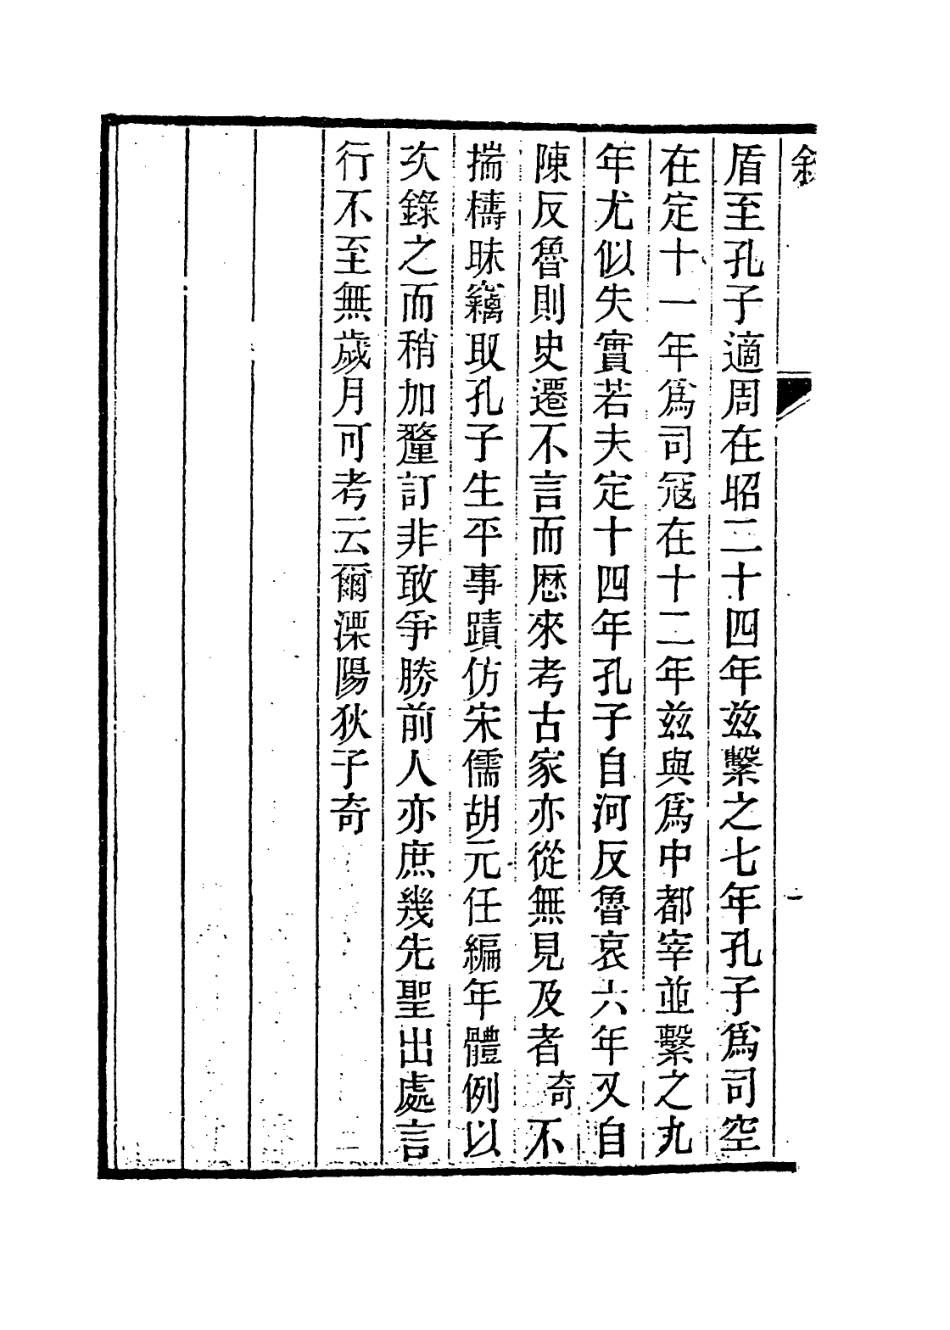 敘
盾至孔子適周在昭二十四年兹繫之七年孔子爲司空
在定十一年爲司寇在十二年兹與爲中都宰並繫之九
年尤似失實若夫定十四年孔子自河反魯哀六年又自
陳反魯則史遷不言而厯來考古家亦從無見及者奇不
揣檮昧竊取孔子生平事蹟仿宋儒胡元任編年體例以
次錄之而稍加釐訂非敢爭勝前人亦庶幾先聖出處言
行不至無歲月可考云爾溧陽狄子奇
一